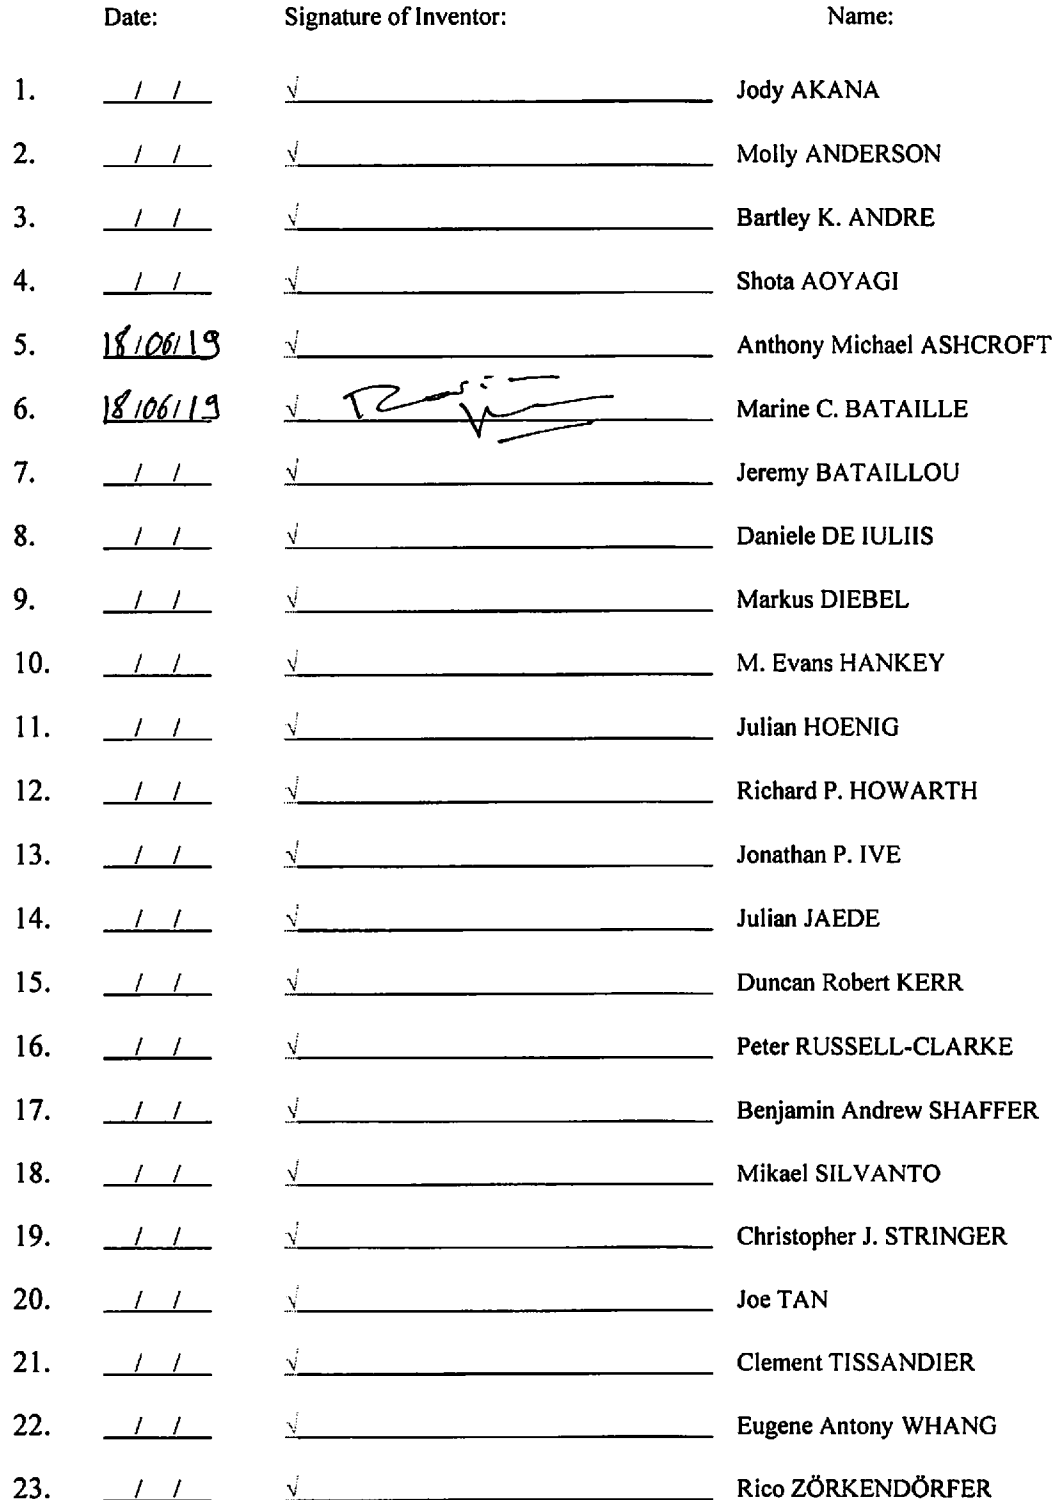 Date: Signature of Inventor: Name:
1. / / √ Jody AKANA
2. / / √ Molly ANDERSON
3. / / √ Bartley K. ANDRE
4. / / √ Shota AOYAGI
5. 18/06/19 √ Anthony Michael ASHCROFT
6. 18/06/19 √ Marine C. BATAILLE
7. / / √ Jeremy BATAILLOU
8. / / √ Daniele DE IULIIS
9. / / √ Markus DIEBEL
10. / / √ M. Evans HANKEY
11. / / √ Julian HOENIG
12. / / √ Richard P. HOWARTH
13. / / √ Jonathan P. IVE
14. / / √ Julian JAEDE
15. / / √ Duncan Robert KERR
16. / / √ Peter RUSSELL-CLARKE
17. / / √ Benjamin Andrew SHAFFER
18. / / √ Mikael SILVANTO
19. / / √ Christopher J. STRINGER
20. / / √ Joe TAN
21. / / √ Clement TISSANDIER
22. / / √ Eugene Antony WHANG
23. / / √ Rico ZÖRKENDÖRFER